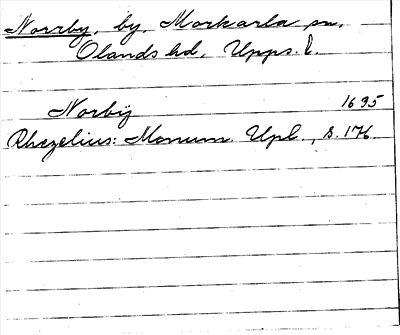 Norrby, by, Morkarla sn,
Olands hd, Upps. l.
Norbÿ 1695
Rhezelius: Monum. Upl., s. 176